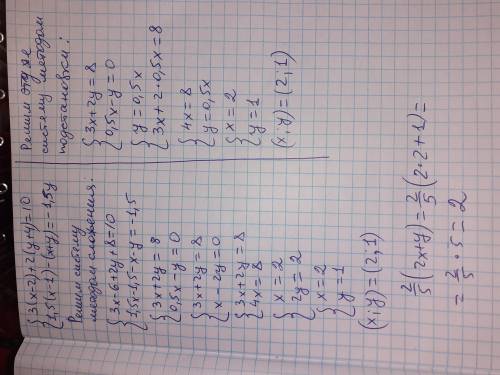 {3(x-2)+2(y+4)=10
{1,5(x-1)-(x+y)=-1,5y
Решим систему
методом сложения:
{3x-6+2y+8=10
{1,5x-1,5-x-y=-1,5
{3x+2y=8
{0,5x-y=0
{3x+2y=8
{x-2y=0
{3x+2y=8
{4x=8
{x=2
{2y=2
{x=2
{y=1
(x;y)=(2;1)
Решим эту же
систему методом
подстановки:
{3x+2y=8
{0,5x-y=0
{y=0,5x
{3x+2·0,5x=8
{4x=8
{y=0,5x
{x=2
{y=1
(x;y)=(2;1)
2/5(2x+y)=2/5(2·2+1)=
=2/5·5=2